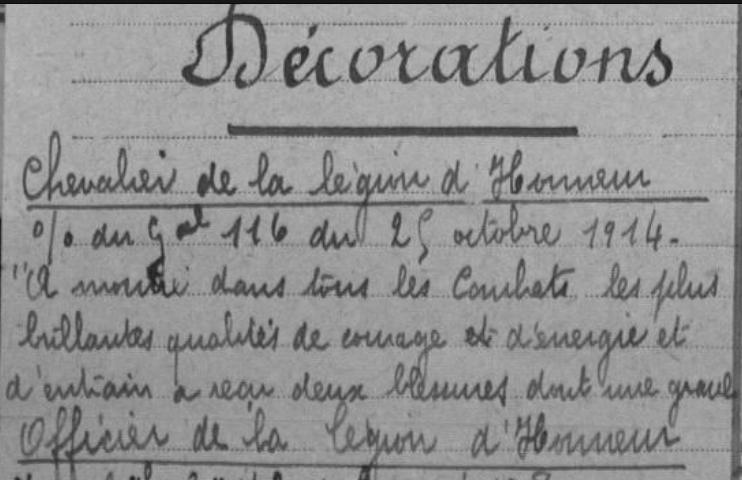 Décorations
Chevalier de la légion d'Honneur
% du Gal 116 du 25 octobre 1914.
"A montré dans tous les Combats les plus
brillantes qualités de courage et d'énergie et
d'entrain a reçu deux blessures dont une grave
Officier de la légion d'Honneur